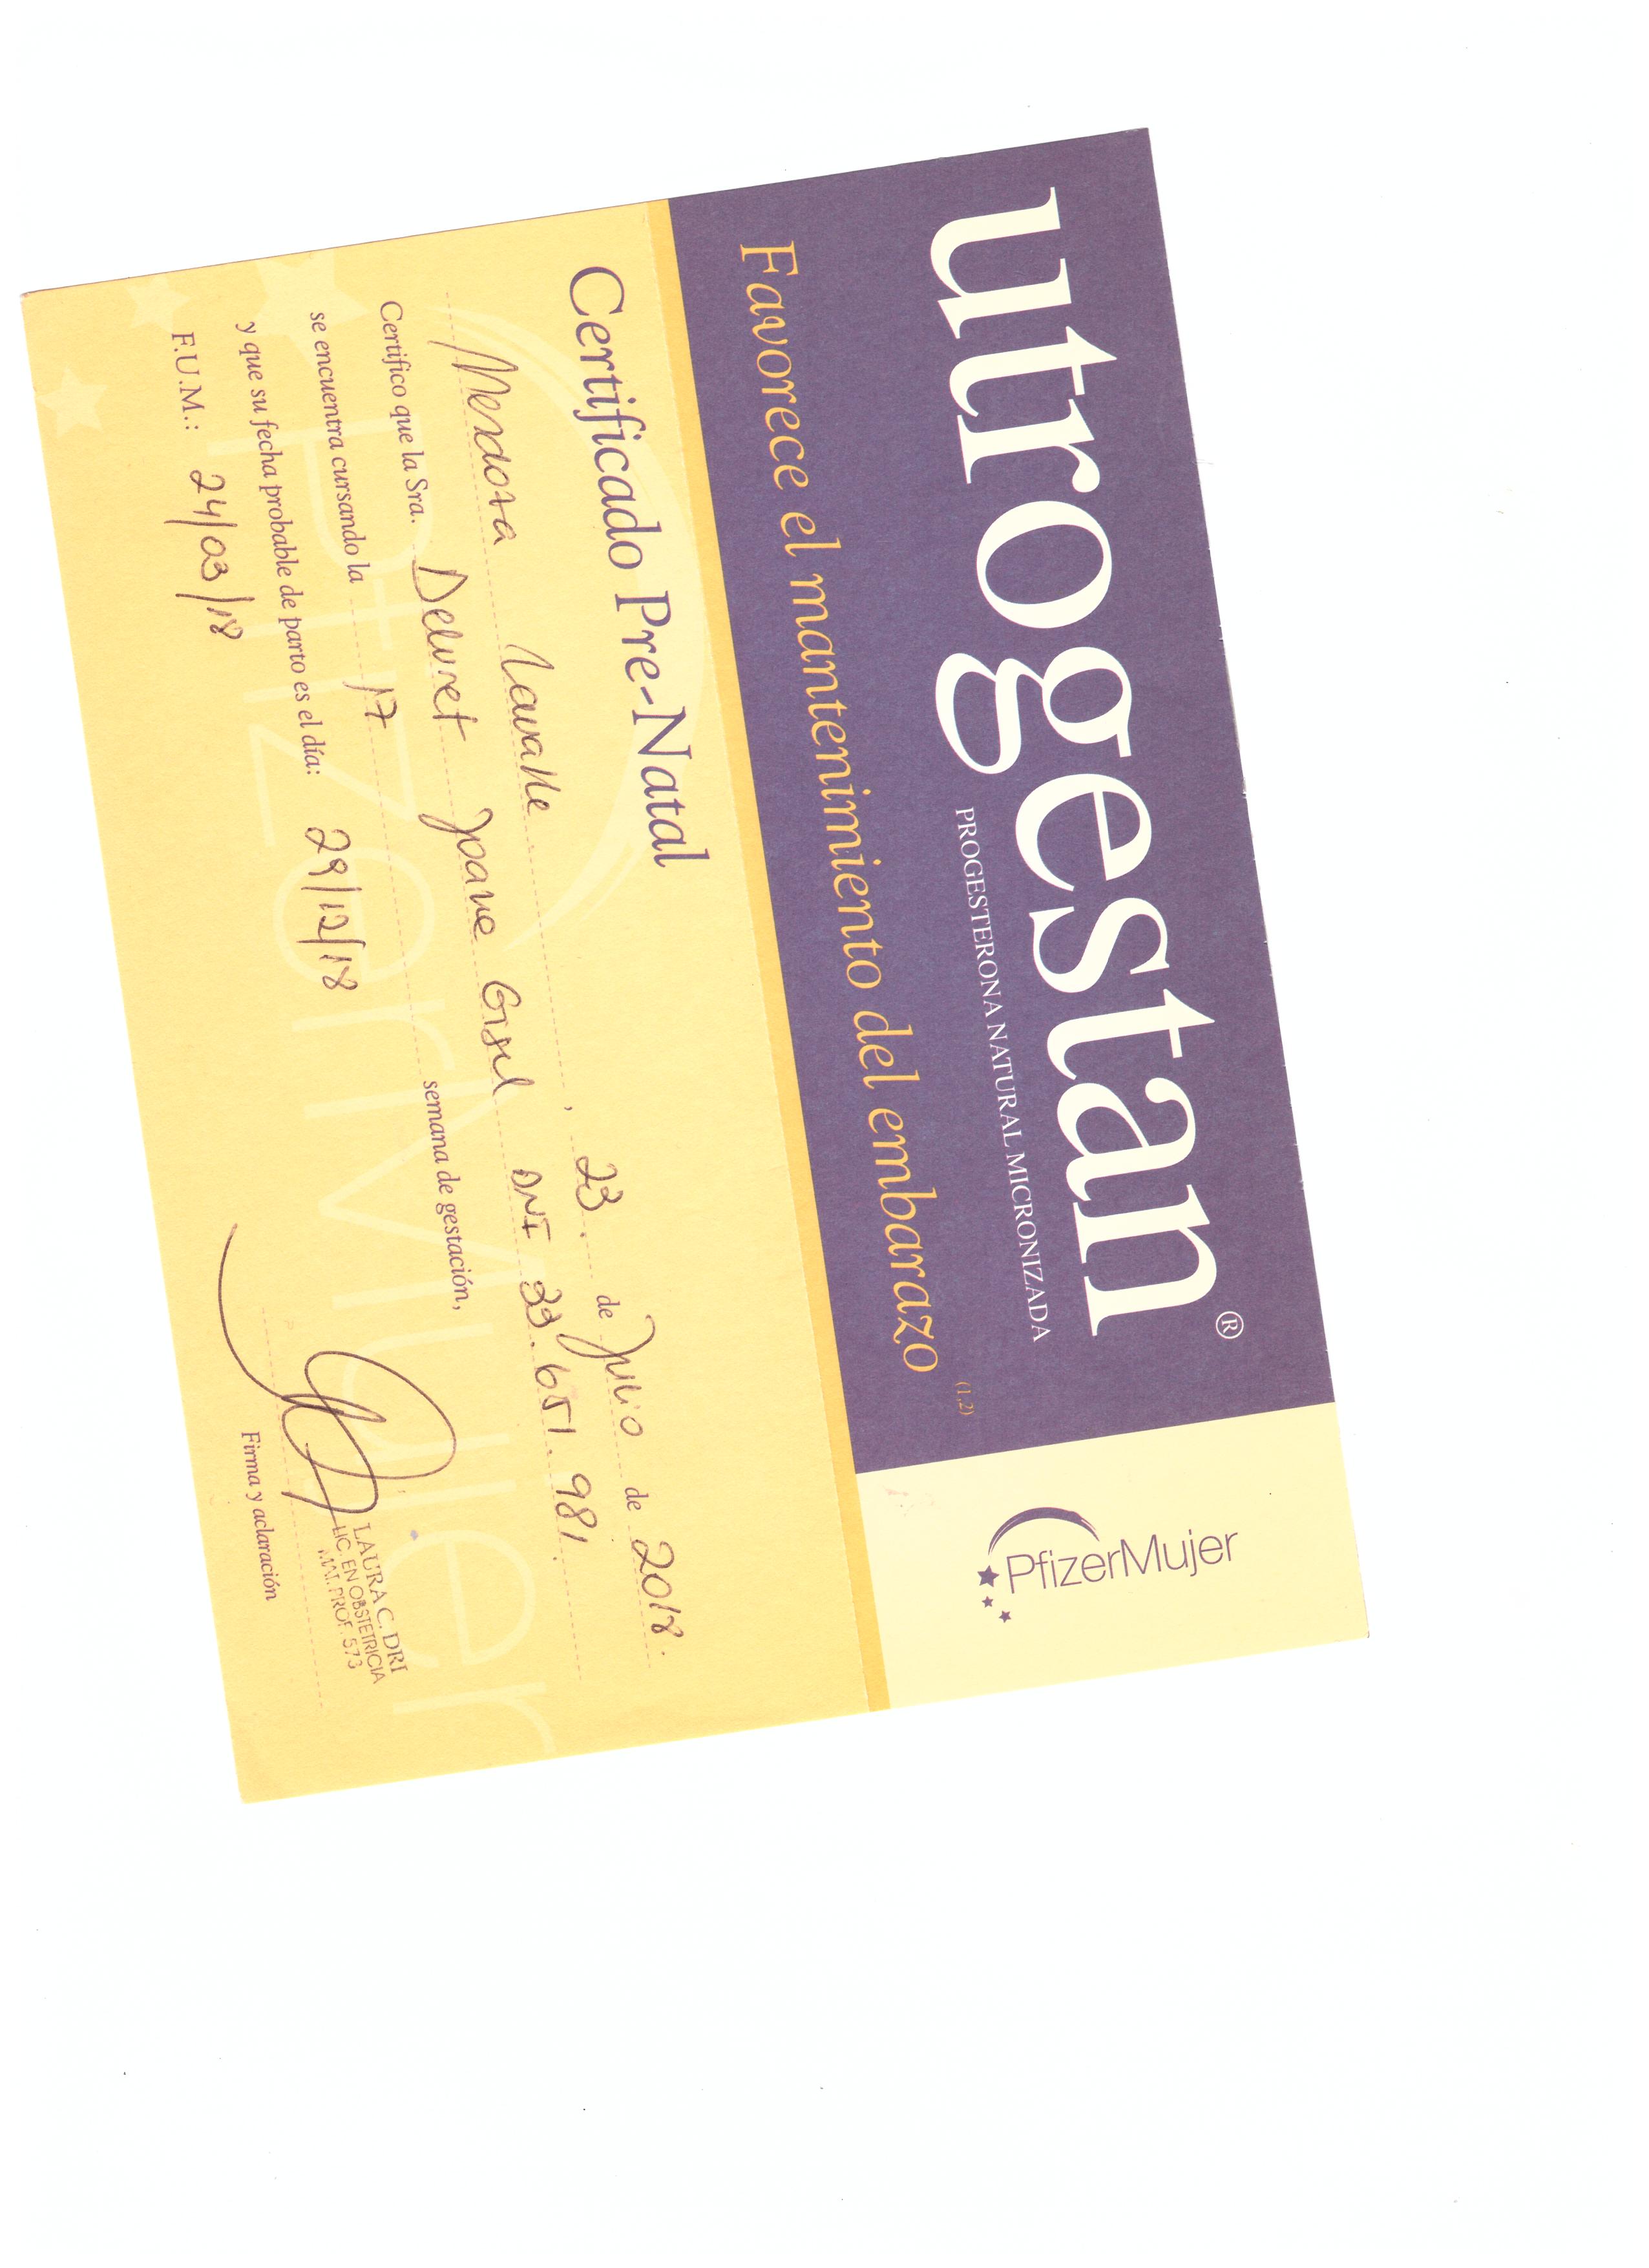 utrogestan®
PROGESTERONA NATURAL MICRONIZADA
Favorece el mantenimiento del embarazo (1,2)
PfizerMujer
Certificado Pre-Natal
Mendoza Lavalle, 23. de Julio de 2018.
Certifico que la Sra. Joane Gisel DNI 33.651.981.
se encuentra cursando la 17 semana de gestación,
y que su fecha probable de parto es el día: 29/12/18
F.U.M.: 24/03/18
LAURA C. DRI
LIC. EN OBSTETRICIA
MAT. PROF. 573
Firma y aclaración
PfizerMujer